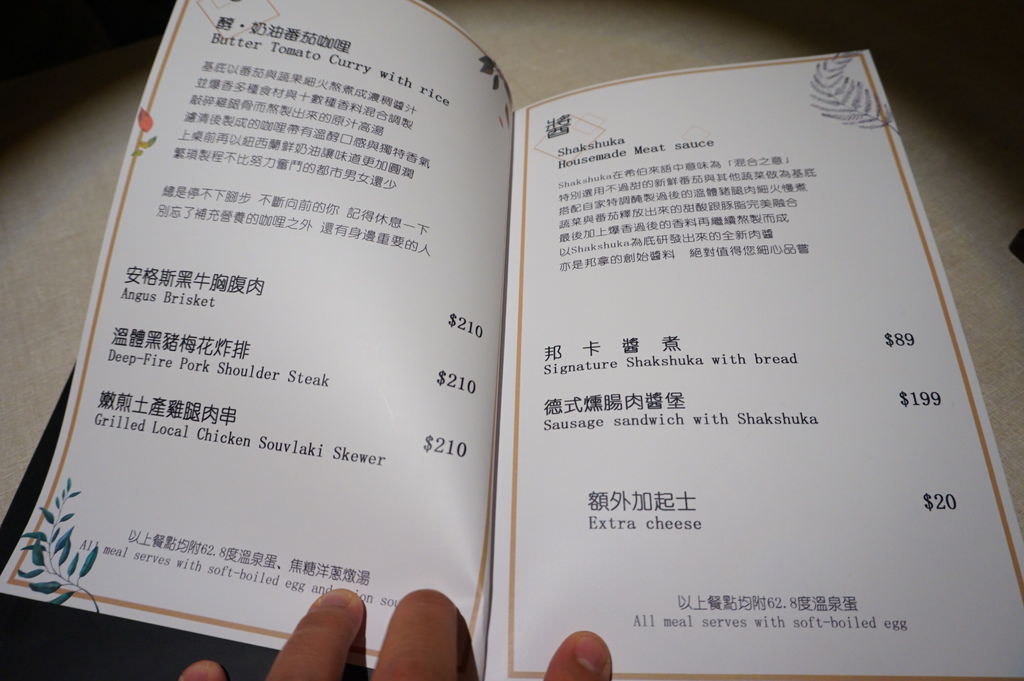 醇・奶油番茄咖哩
Butter Tomato Curry with rice
基底以番茄與蔬果細火熬煮成濃稠醬汁
並爆香多種食材與十數種香料混合調製
敲碎雞腿骨而熬製出來的原汁高湯
濾清後製成的咖哩帶有溫醇口感與獨特香氣
上桌前再以紐西蘭鮮奶油讓味道更加圓潤
繁瑣製程不比努力奮鬥的都市男女還少
總是停不下腳步 不斷向前的你 記得休息一下
別忘了補充營養的咖哩之外 還有身邊重要的人
安格斯黑牛胸腹肉
Angus Brisket
$210
溫體黑豬梅花炸排
Deep-Fire Pork Shoulder Steak
$210
嫩煎土產雞腿肉串
Grilled Local Chicken Souvlaki Skewer
$210
以上餐點均附62.8度溫泉蛋、焦糖洋蔥燉湯
All meal serves with soft-boiled egg and onion sou
醬
Shakshuka
Housemade Meat sauce
Shakshuka在希伯來語中意味為「混合之意」
特別選用不過甜的新鮮番茄與其他蔬菜做為基底
搭配自家特調醃製過後的溫體豬腿肉細火慢煮
蔬菜與番茄釋放出來的甜酸跟豚脂完美融合
最後加上爆香過後的香料再繼續熬製而成
以Shakshuka為底研發出來的全新肉醬
亦是邦拿的創始醬料 絕對值得您細心品嘗
邦卡醬煮
$89
Signature Shakshuka with bread
德式燻腸肉醬堡
$199
Sausage sandwich with Shakshuka
額外加起士
$20
Extra cheese
以上餐點均附62.8度溫泉蛋
All meal serves with soft-boiled egg